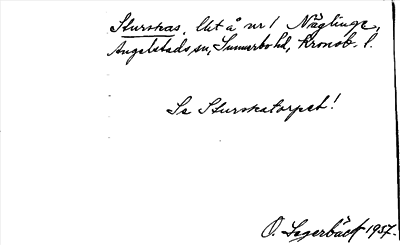 Sturskas, lht å nr 1 Näglinge,
Angelstads sn, Sunnerbo hd, Kronob. l.
Se Sturskatorpet!
O. Segerbäck 1937.